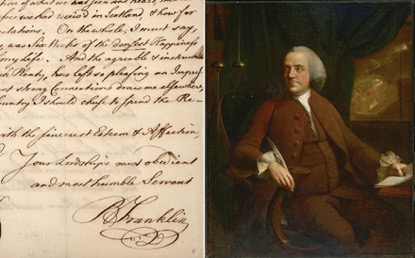 tion of what we had seen and heard, the
ness we had receiv'd in Scotland, & how far
tations. On the whole, I must say,
was Six Weeks of the densest Happiness
my Life. And the agreable & instructive
such Plenty, has left so pleasing an Impres
not strong Connections draw me elsewhere,
Country I should chuse to spend the Re-
with the sincerest Esteem & Affection,
Your Lordship's most obedient
and most humble Servant
B Franklin